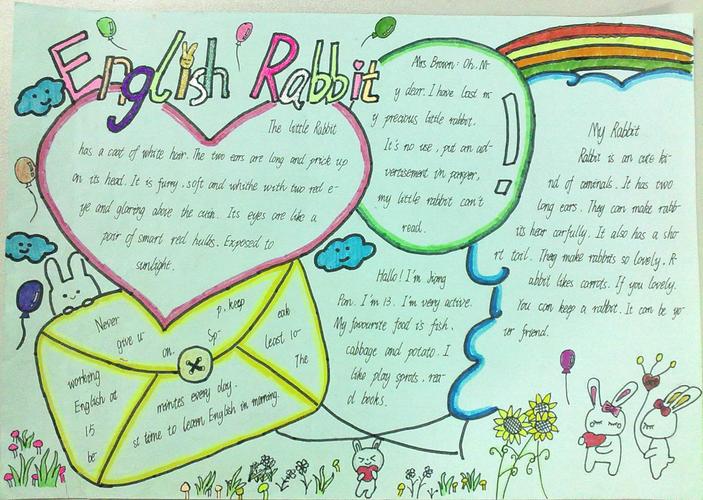 English Rabbit
The little Rabbit
has a coat of white hair. The two ears are long and prick up
on its head. It is furry, soft and whithe with two red e-
ye and glaring above the
Its eyes are like a
pair of smart red hulbs. Exposed to
sunlight.
Mrs Brown: Oh, M
y dear. I have last m
y precious little rabbit.
It's no use, put an ad-
vertisement in panper,
my little rabbit can't
read.
My Rabbit
Rabbit is an cute ki-
nd of aminals. It has two
long ears. They can make rabb-
its hear carfully. It also has a sho
rt tail. They make rabbits so lovely. R-
abbit likes carrots. If you lovely.
You can keep a rabbit. It can be yo-
ur friend.
Hallo! I'm Jiang
Pan. I'm 13. I'm very active.
My favourite food is fish,
cabbage and potato. I
like play sprots, rea-
d books.
Never
give u-
p. keep
on. Sp-
eak
least 10-
The
working
English at
15
be-
minutes every day.
st time to learn English in morning.